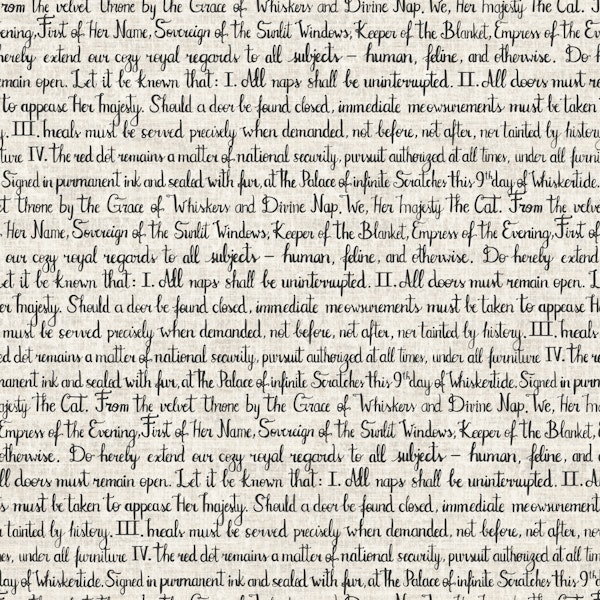 From the velvet throne by the Grace of Whiskers and Divine Nap. We, Her Majesty the Cat. F
ening, First of Her Name, Sovereign of the Sunlit Windows, Keeper of the Blanket, Empress of the E
hereby extend our cozy royal regards to all subjects – human, feline, and otherwise. Do h
emain open. Let it be known that: I. All naps shall be uninterrupted. II. All doors must re
to appease Her Majesty. Should a door be found closed, immediate meowsurements must be taken
y. III. Meals must be served precisely when demanded, not before, not after, nor tainted by history
ture IV. the red dot remains a matter of national security, pursuit authorized at all times, under all furni
Signed in purrmanent ink and sealed with fur, at The Palace of infinite Scratches this 9th day of Whiskertide.
et throne by the Grace of Whiskers and Divine Nap. We, Her Majesty the Cat. From the velv
Her Name, Sovereign of the Sunlit Windows, Keeper of the Blanket, Empress of the Evening, First of
our cozy royal regards to all subjects – human, feline, and otherwise. Do hereby extend
et it be known that: I. All naps shall be uninterrupted. II. All doors must remain open. L
er Majesty. Should a door be found closed, immediate meowsurements must be taken to appease Her
must be served precisely when demanded, not before, not after, nor tainted by history. III. Meals
ed dot remains a matter of national security, pursuit authorized at all times, under all furniture IV. the re
manent ink and sealed with fur, at The Palace of infinite Scratches this 9th day of Whiskertide. Signed in purrm
ajesty the Cat. From the velvet throne by the Grace of Whiskers and Divine Nap. We, Her Ma
Empress of the Evening, First of Her Name, Sovereign of the Sunlit Windows, Keeper of the Blanket,
otherwise. Do hereby extend our cozy royal regards to all subjects – human, feline, and
ll doors must remain open. Let it be known that: I. All naps shall be uninterrupted. II. A
s must be taken to appease Her Majesty. Should a door be found closed, immediate meowsurement
r tainted by history. III. Meals must be served precisely when demanded, not before, not after, nor
es, under all furniture IV. the red dot remains a matter of national security, pursuit authorized at all tim
day of Whiskertide. Signed in purrmanent ink and sealed with fur, at The Palace of infinite Scratches this 9th d